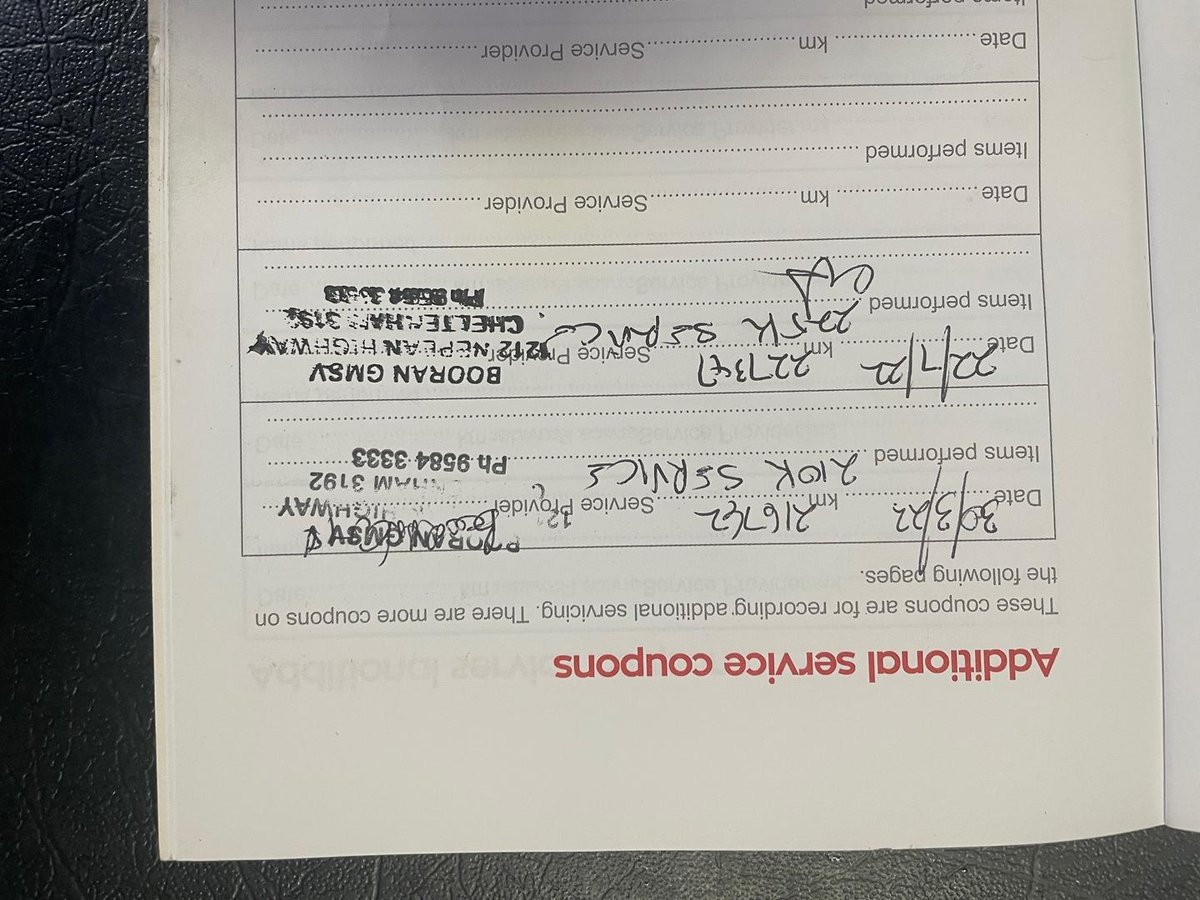 Additional service coupons
These coupons are for recording additional servicing. There are more coupons on
the following pages.
BOORAN GMSV
Date 30/3/22 km 216762 Service Provider HIGHWAY
HAM 3192
Items performed 210K SERVICE Ph 9584 3333
BOORAN GMSV
Date 22/7/22 km 227347 Service Provider 1212 NEPEAN HIGHWAY
225K SERVICE CHELTENHAM 3192
Items performed Ph 9584 3333
Date km Service Provider
Items performed
Date km Service Provider
Items performed